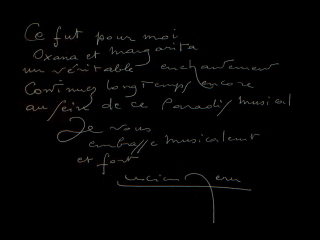 Ce fut pour moi
Oxana et Margarita
un véritable enchantement
Continuez longtemps encore
au sein de ce Paradis musical
Je vous
embrasse musicalement
et fort